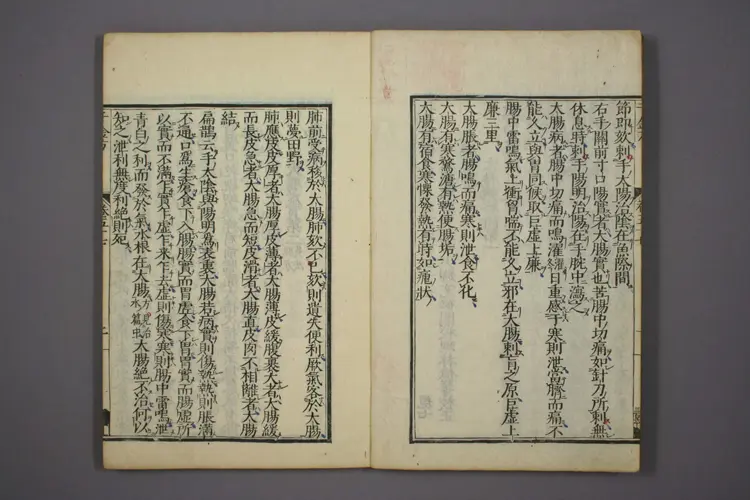 節即欬刺手太陽太陰在魚際間
右手關前寸口陽實者大腸實也苦腸中切痛如針刀所刺無
休息時刺手陽明治陽在手腕中瀉之
大腸病者腸中切痛而鳴濯濯冬日重感于寒則泄當臍而痛不
能久立與胃同候取巨虛上廉
腸中雷鳴氣上衝胸喘不能久立邪在大腸刺肓之原巨虛上
廉三里
大腸脹者腸鳴而痛寒則泄食不化
大腸有寒鶩溏有熱便腸垢
大腸有宿食寒慄發熱有時如瘧狀
肺前受病移於大腸肺欬不已欬則遺失便利厥氣客於大腸
則夢田野
肺應皮皮厚者大腸厚皮薄者大腸薄皮緩腹裹大者大腸緩
而長皮急者大腸急而短皮滑者大腸直皮肉不相離者大腸
結
扁鵲云手太陰與陽明為表裏大腸若病實則傷熱熱則脹滿
不通口為生瘡食下入腸腸實而胃虛食下胃胃實而腸虛所
以實而不滿乍實乍虛乍來乍去虛則傷寒寒則腸中雷鳴泄
青白之利而發於氣水根在大腸方見治水篇中大腸絕不治何以
知之泄利無度利絕則死